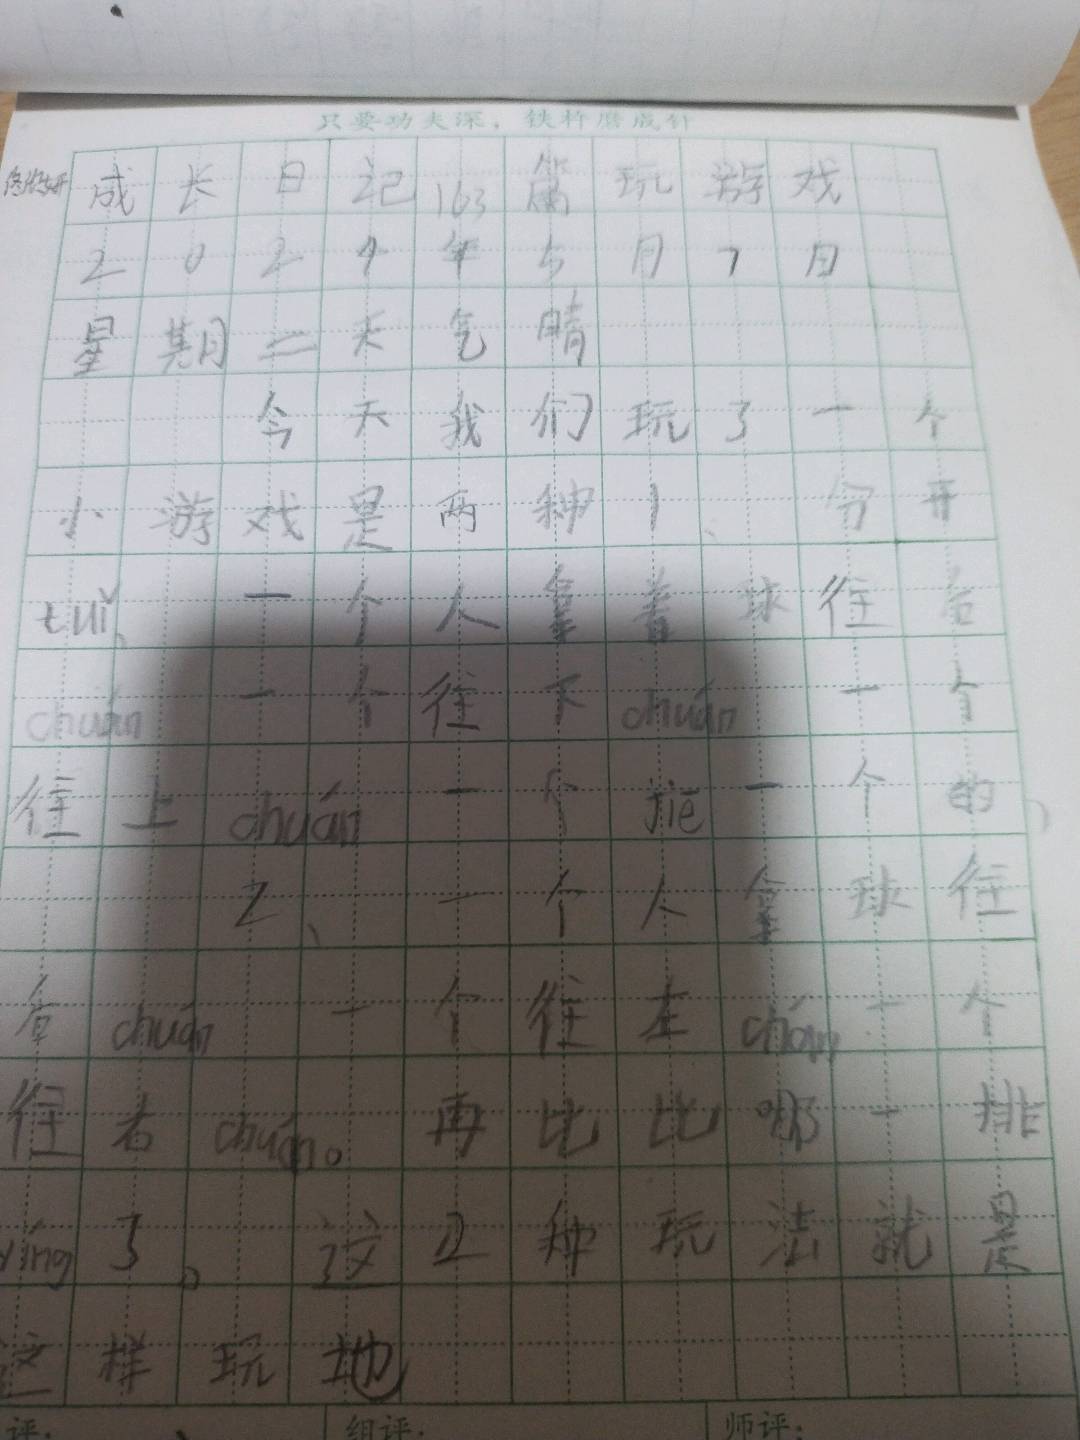 只要功夫深，铁杵磨成针
成长日记163篇玩游戏
2024年5月7日
星期二天气晴
今天我们玩了一个
小游戏是两种1、分开
tuǐ、一个人拿着球往后
chuán一个往下chuán一个
往上chuán一个jiē一个的
2、一个人拿球往
右chuán一个往左chuán一个
往右chuán。再比比哪一排
yíng了。这2种玩法就是
这样玩地
评：组评：师评：